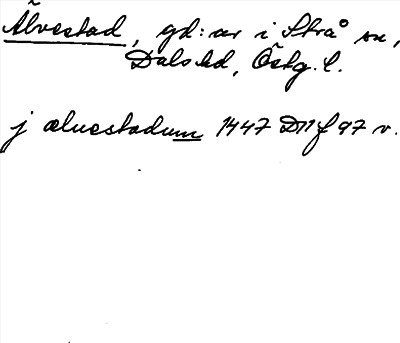 Älvestad, gd:ar i Strå sn,
Dals hd, Östg. l.
j æluestadum 1447 D11 f 97 v.